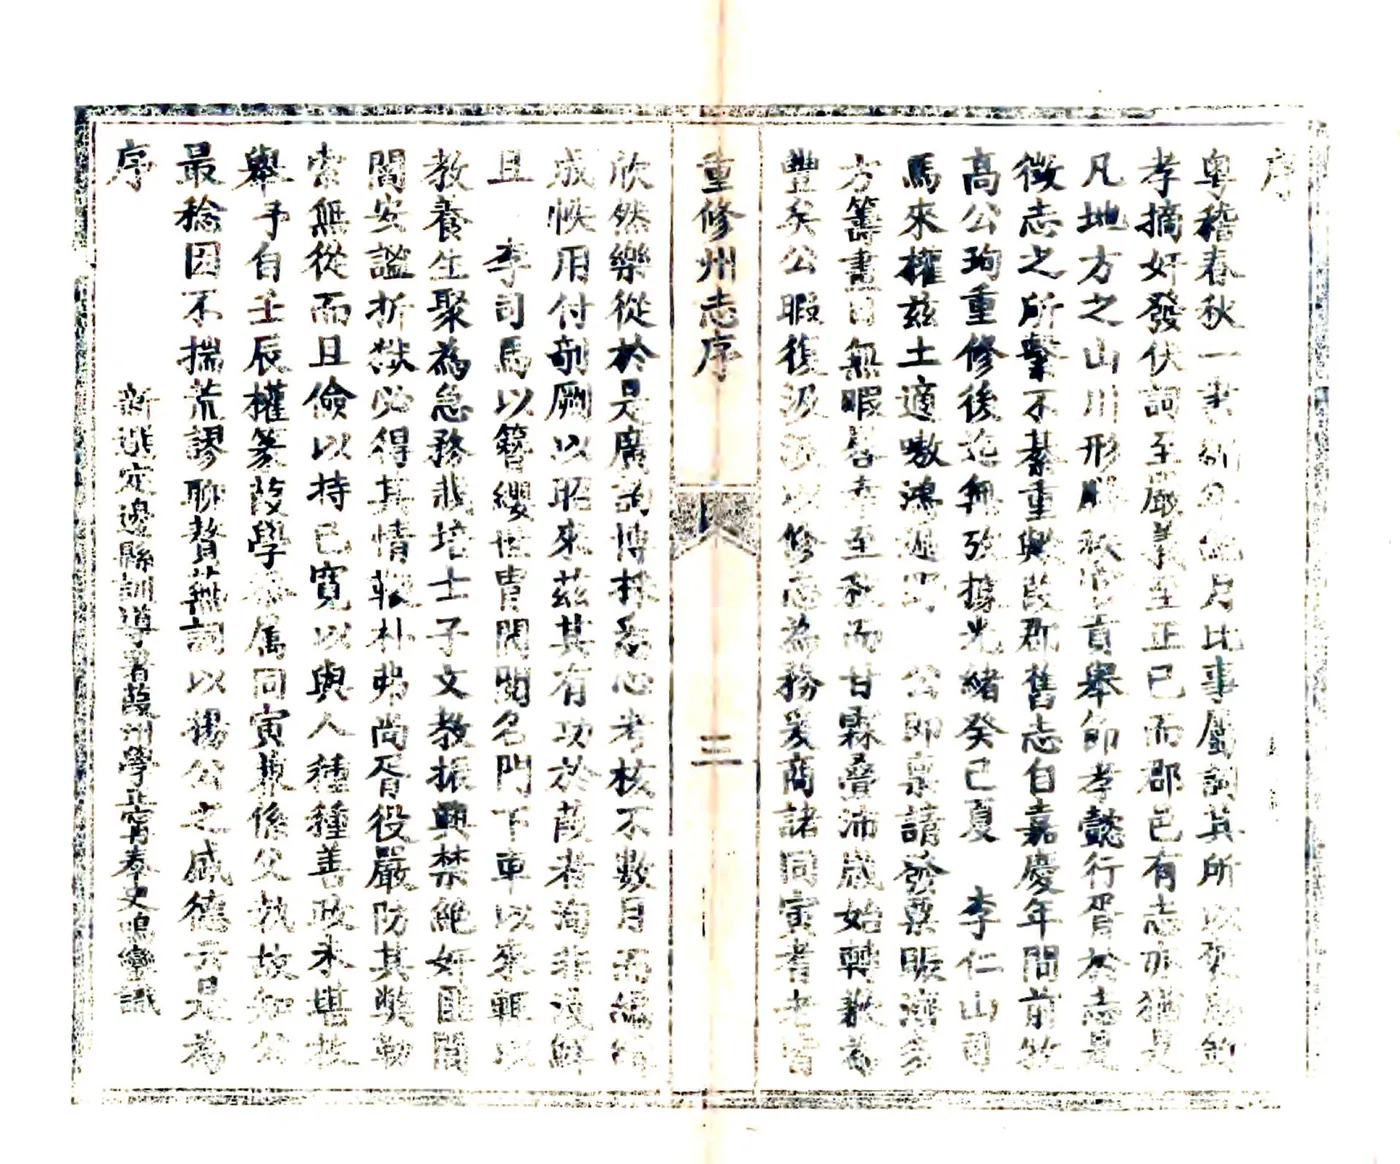 序
粤稽春秋一書編年紀月比事屬詞其所以褒忠
孝摘奸發伏詞至嚴義至正已而郡邑有志亦猶是
凡地方之山川形勝秩官貢舉節孝懿行胥於志是
徵志之所繫不綦重與葭郡舊志自嘉慶年間前牧
高公珣重修後迄無攷據光緒癸巳夏 李仁山司
馬來權兹土適嗷鴻遍野 公即禀請發粟賑濟多
方籌畫日無暇晷春至秋而甘霖疊沛歲始轉歉為
豐矣公暇復汲汲以修志為務爰商諸同寅耆老皆
重修州志序
三
欣然樂從於是廣諮博採悉心考核不數月而編
成帙用付剞劂以昭來兹其有功於葭者洵非淺鮮
且 李司馬以簪纓世冑閥閱名門下車以來輒以
教養生聚為急務我培士子文教振興禁絕奸匪閭
閻安謐折獄必得其情鞭朴弗尚胥役嚴防其弊勒
索無從而且儉以持己寬以與人種種善政未堪枚
舉予自壬辰權篆葭學忝属同寅兼係父执故知公
最稔因不揣荒謬聊贅蕪詞以揚公之盛德云是為
序
新選定邊縣訓導署葭州學正甯奉文鳴鑾識